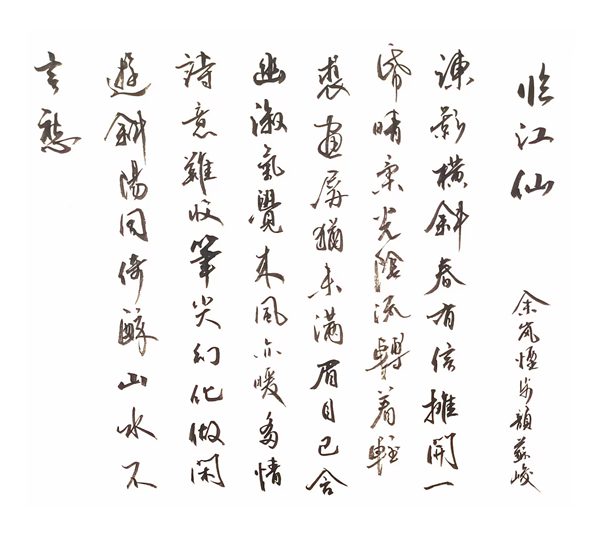 临江仙
余氣煙步韻蘇峻
疎影橫斜春有信推開一
帘晴柔光陰流轉着輕
裘畫屏猶未滿眉目已含
幽激氣覺來風亦暖多情
詩意難收筆尖幻化做閑
遊斜陽同倚醉山水不
言愁